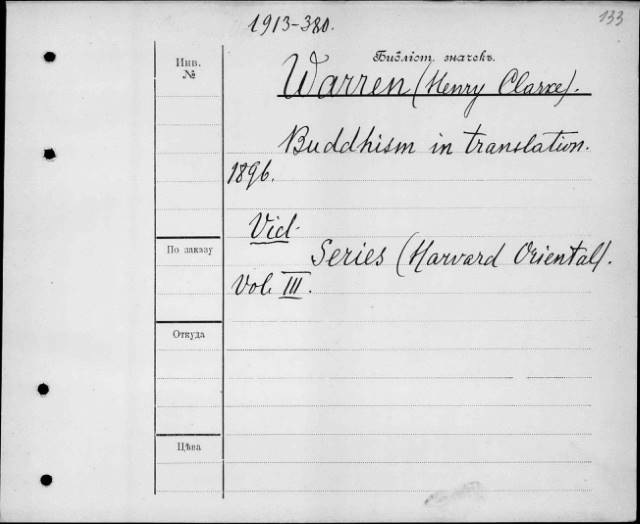 1913-380.
133
Инв.
№
Библіот. значекъ.
Warren (Henry Clarke).
Buddhism in translation.
1896.
Vid.
Series (Harvard Oriental).
Vol. III.
По заказу
Откуда
Цѣна